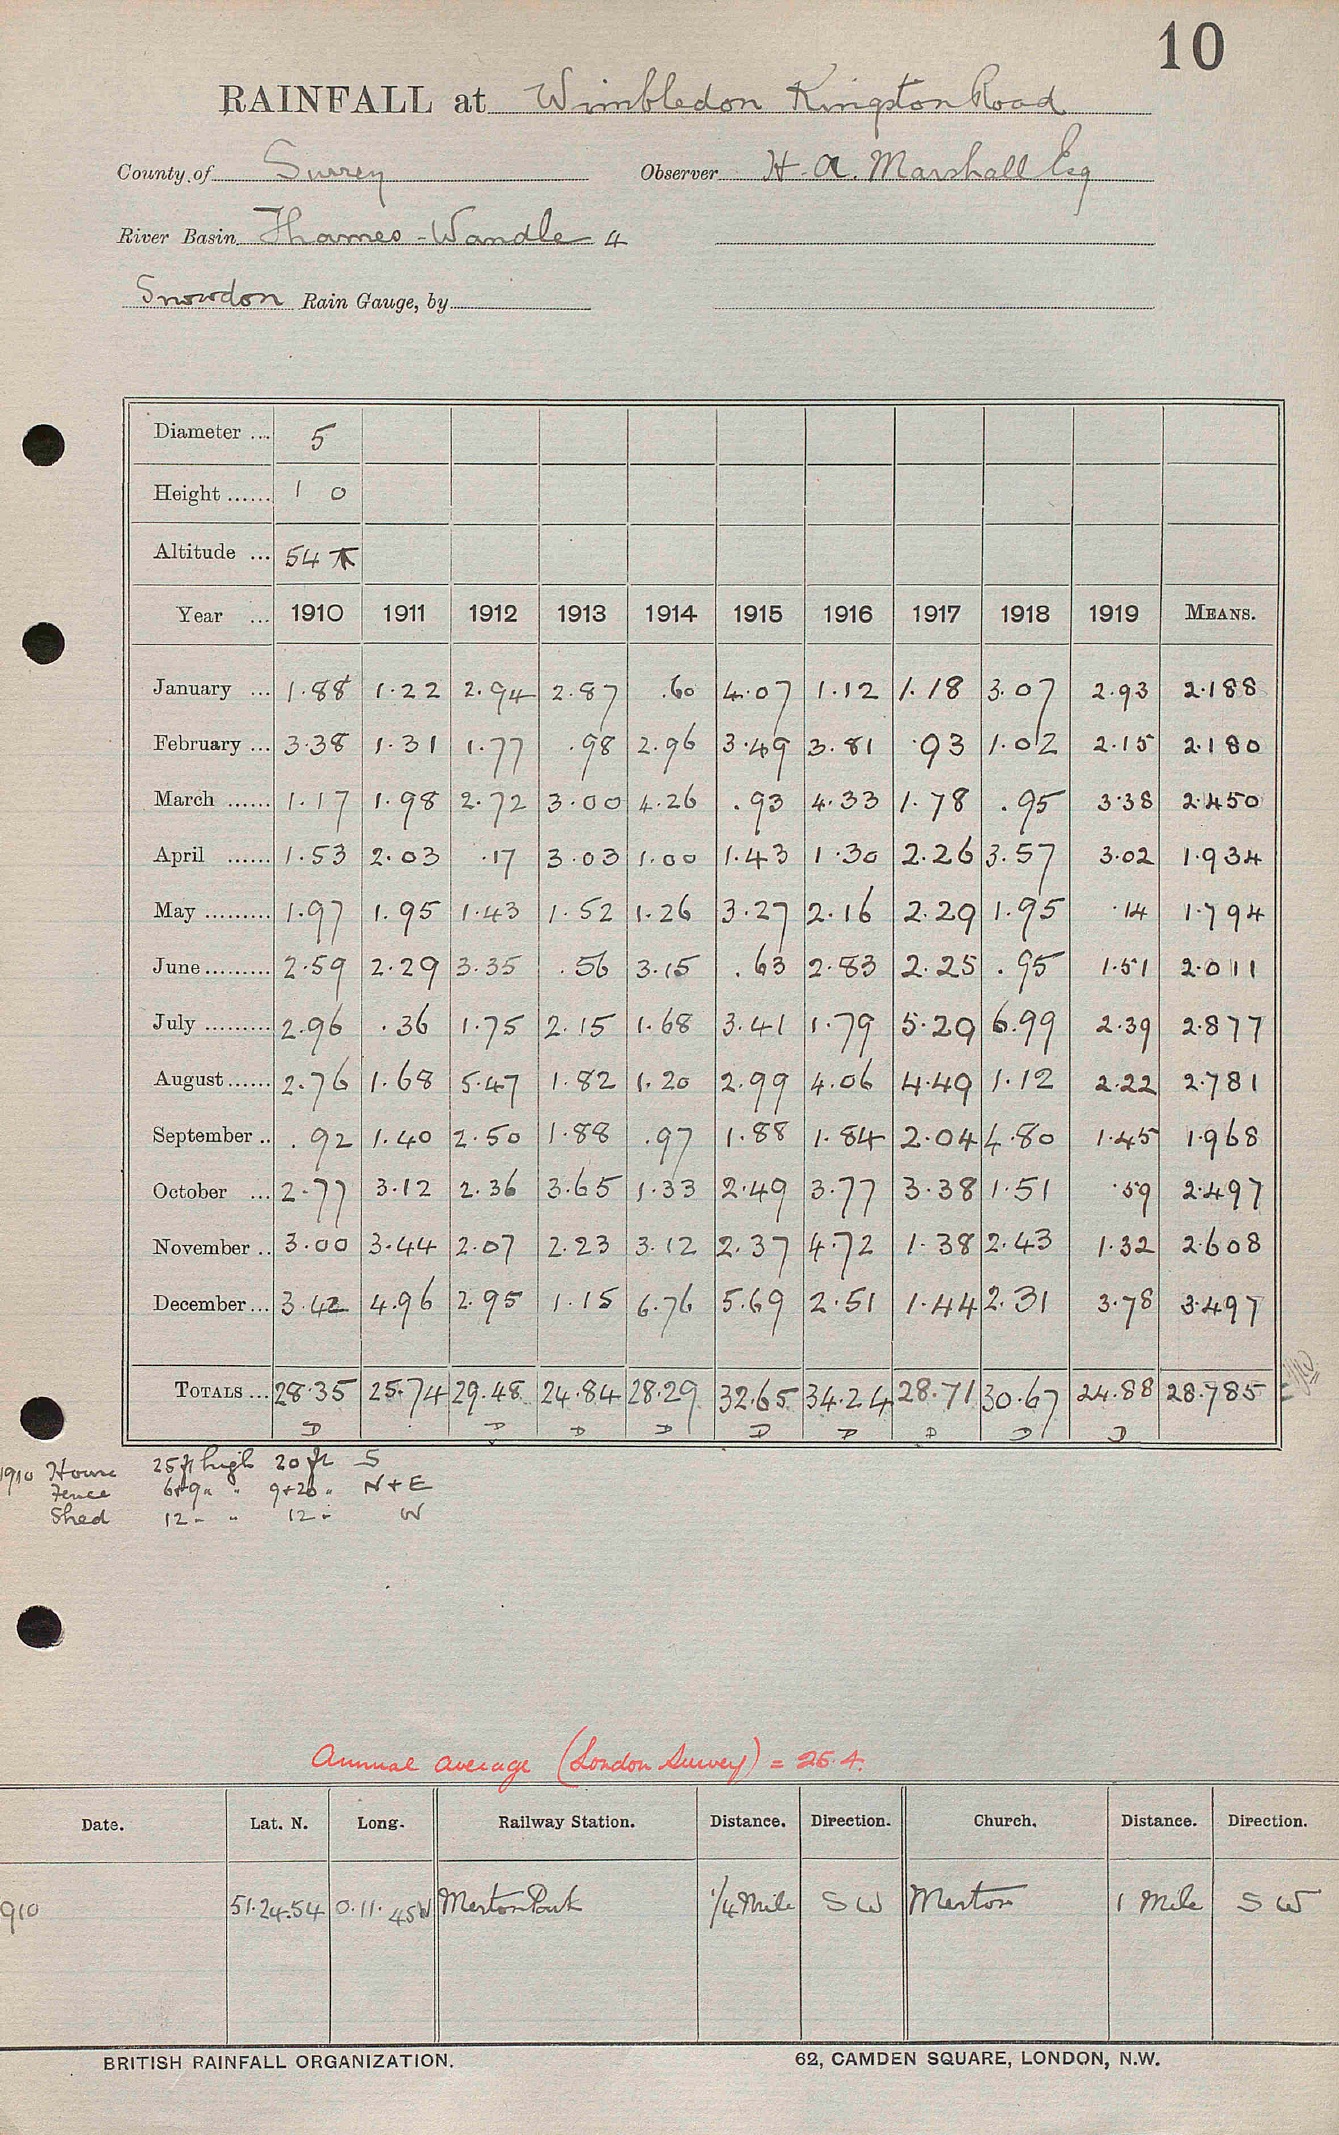 10
RAINFALL at Wimbledon Kingston Road
County of Surrey Observer H. A. Marshall Esq
River Basin Thames - Wandle 4
Snowdon Rain Gauge, by
Diameter ... 5
Height ...... 1 0
Altitude ... 54
Year ... 1910 1911 1912 1913 1914 1915 1916 1917 1918 1919 MEANS.
January ... 1.88 1.22 2.94 2.87 .60 4.07 1.12 1.18 3.07 2.93 2.188
February ... 3.38 1.31 1.77 .98 2.96 3.49 3.81 .93 1.02 2.15 2.180
March ...... 1.17 1.98 2.72 3.00 4.26 .93 4.33 1.78 .95 3.38 2.450
April ...... 1.53 2.03 .17 3.03 1.00 1.43 1.30 2.26 3.57 3.02 1.934
May ......... 1.97 1.95 1.43 1.52 1.26 3.27 2.16 2.29 1.95 .14 1.794
June ......... 2.59 2.29 3.35 .56 3.15 .63 2.83 2.25 .95 1.51 2.011
July ......... 2.96 .36 1.75 2.15 1.68 3.41 1.79 5.29 6.99 2.39 2.877
August ...... 2.76 1.68 5.47 1.82 1.20 2.99 4.06 4.49 1.12 2.22 2.781
September .. .92 1.40 2.50 1.88 .97 1.88 1.84 2.04 4.80 1.45 1.968
October ... 2.77 3.12 2.36 3.65 1.33 2.49 3.77 3.38 1.51 .59 2.497
November .. 3.00 3.44 2.07 2.23 3.12 2.37 4.72 1.38 2.43 1.32 2.608
December ... 3.42 4.96 2.95 1.15 6.76 5.69 2.51 1.44 2.31 3.78 3.497
TOTALS ... 28.35 25.74 29.48 24.84 28.29 32.65 34.24 28.71 30.67 24.88 28.785
D D D D D D D D D
1910 House 25 ft high 20 ft S
Fence 6+9 " " 9+20 " N + E
Shed 12 " " 12 " W
Annual average (London Survey) = 25.4.
Date. Lat. N. Long. Railway Station. Distance. Direction. Church. Distance. Direction.
910 51.24.54 0.11.45W Merton Park 1/4 Mile S W Merton 1 Mile S W
BRITISH RAINFALL ORGANIZATION. 62, CAMDEN SQUARE, LONDON, N.W.